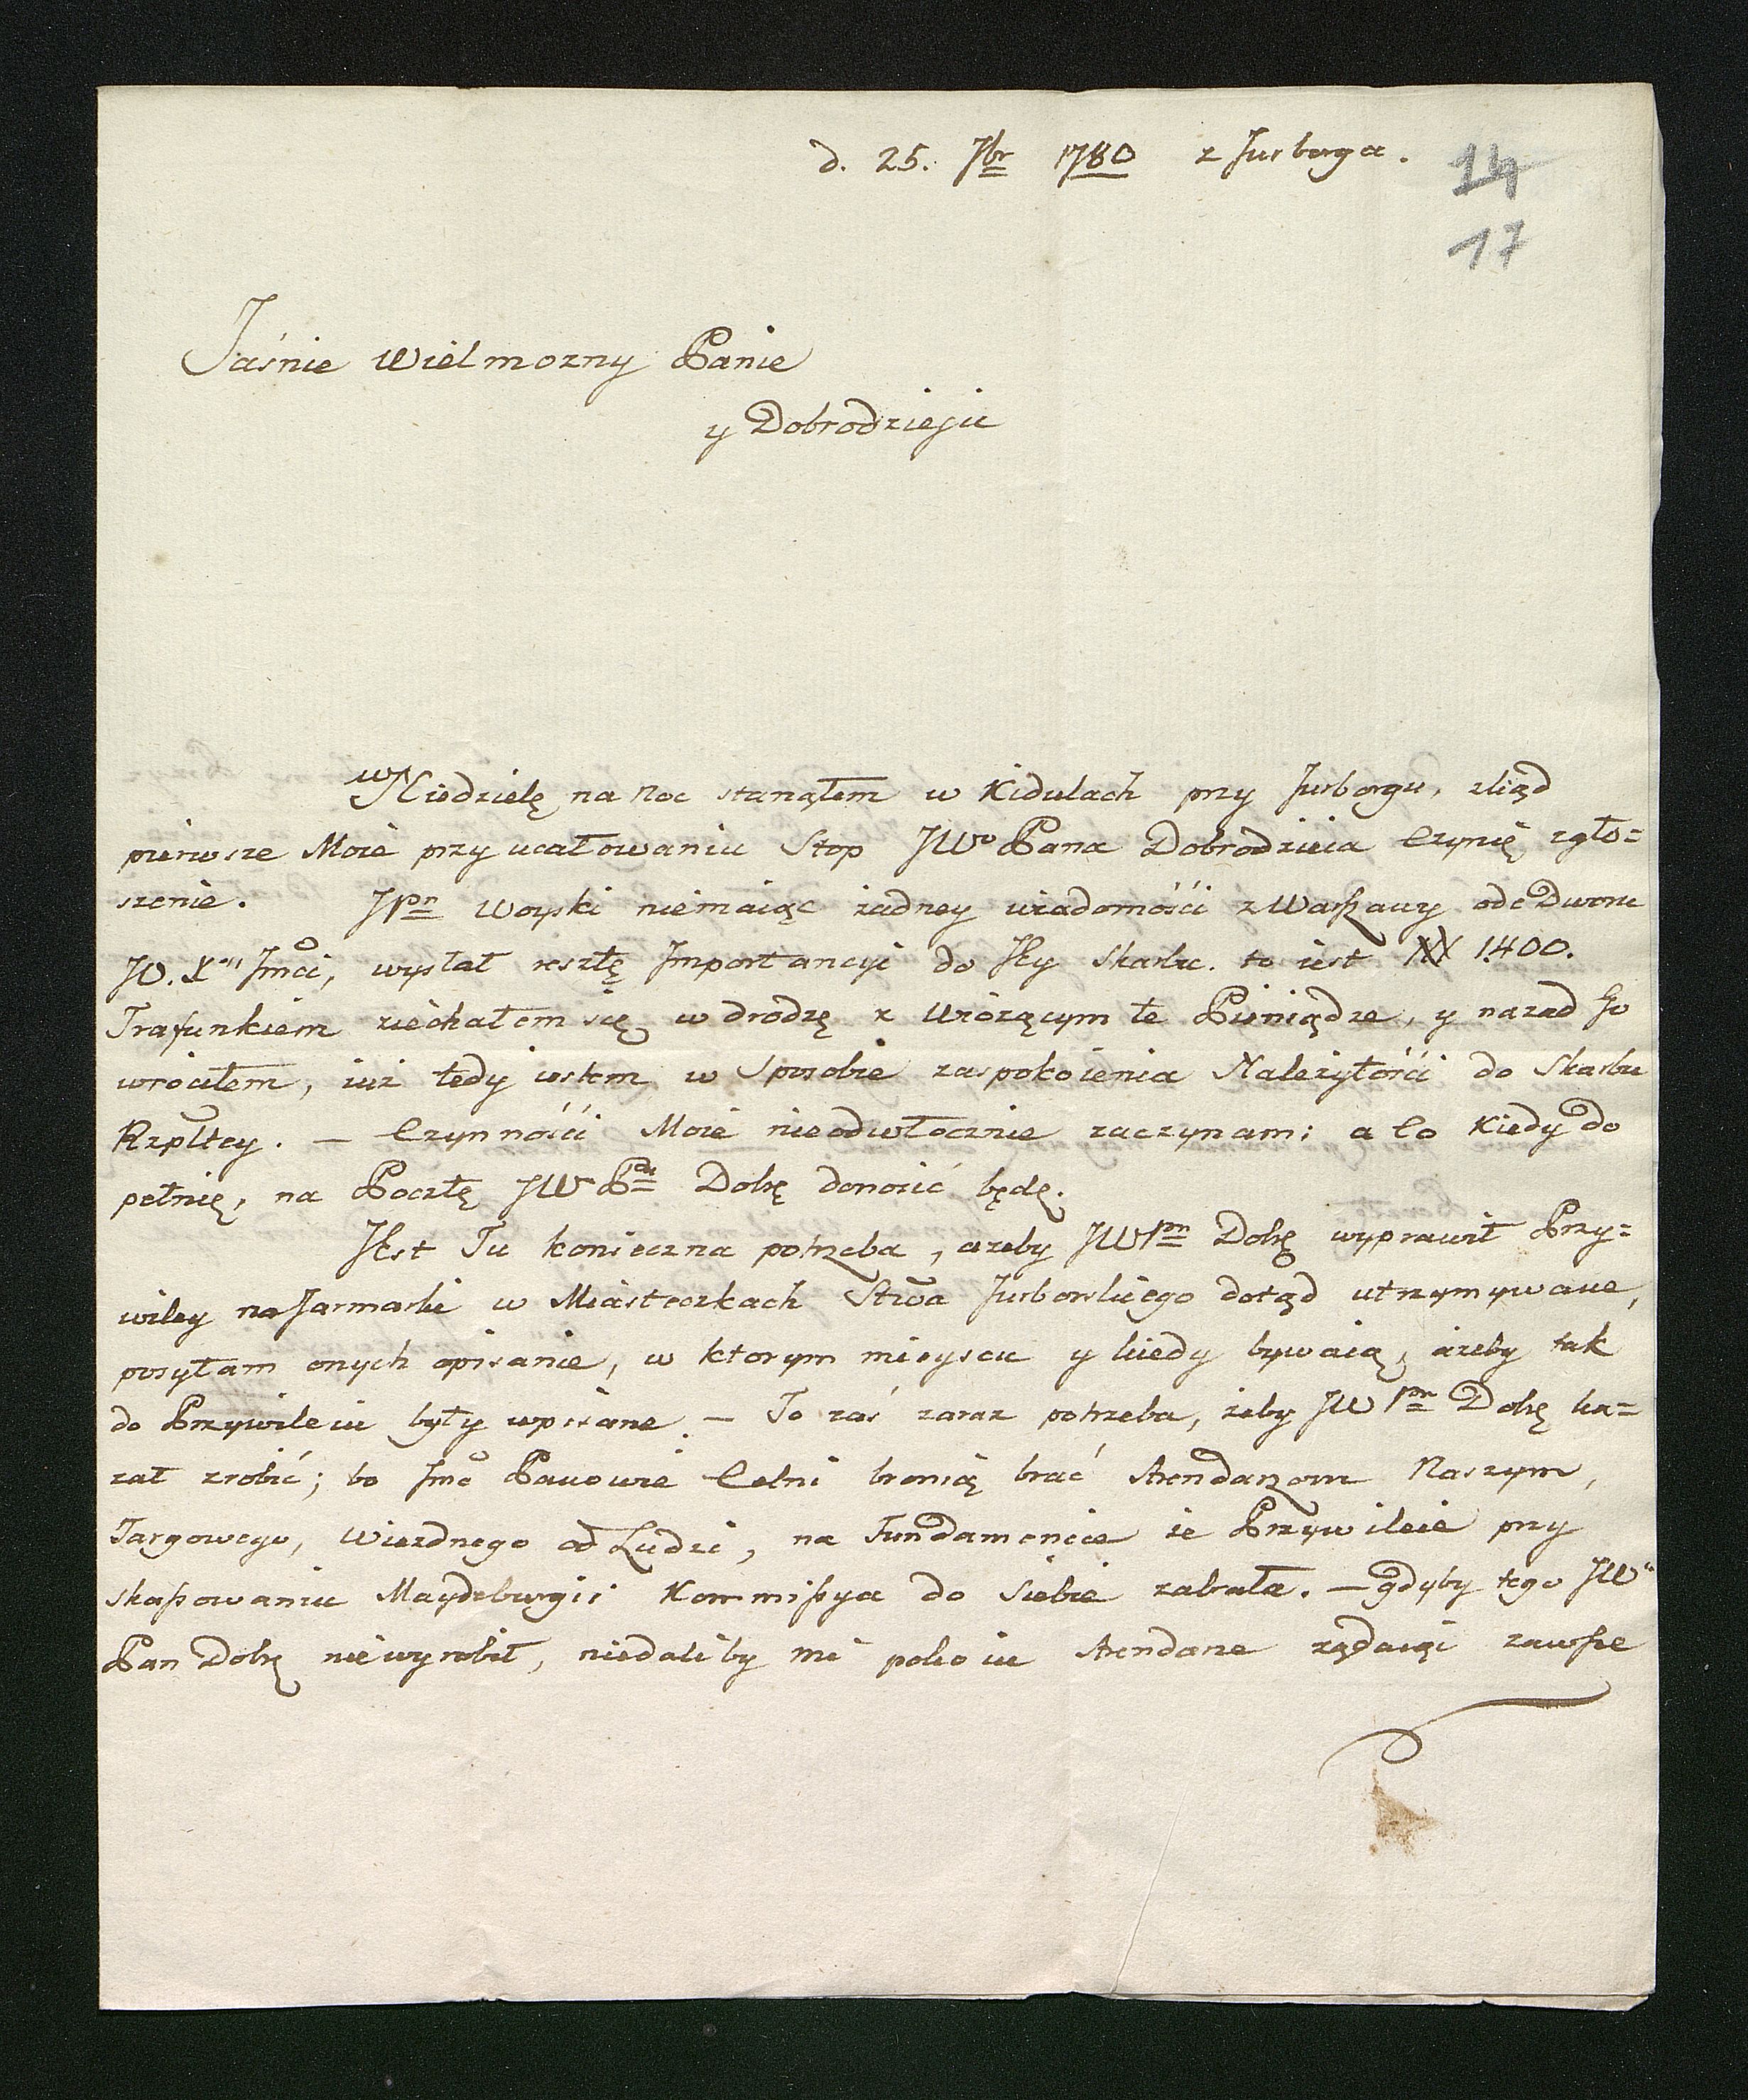 d. 25. 7br 1780 z Jurborga.
14
17
Jaśnie Wielmozny Panie
y Dobrodzieju
w Niedzielę na Noc stanąłem w Kidulach przy Jurborgu, zkąd
pierwsze Moie przy ucałowaniu Stop JWo Pana Dobrodzieia Czynię zgło=
szenie. JPn Woyski niemaiąc żadney wiadomości z Warszawy ode Dworu
JO. X Jmci, wysłał resztę Importancyi do Skarbu. to iest XX 1400.
Trafunkiem ziechałem się w drodzę z Wiozącym te Pieniądze, y nazad Go
wrociłem, iuż tedy iestem w Sposobie zaspokoienia Należytości do Skarbu
Rzpltey. — Czynności Moie nieodwłocznie zaczynam: a Co Kiedy do
pełnię, na Pocztę JW Pu Dobę donosić będę.
Jest Tu konieczna potrzeba, ażeby JWPn Dobę wyprawił Przy=
wiley na Jarmarki w Miasteczkach Stwa Jurborskiego dotąd utrzymywane,
posyłam onych opisanie, w ktorym mieyscu y kiedy bywaią, ażeby tak
do Przywileiu były wpisane. — To zaś zaraz potrzeba, żeby JWPn Dobę ka=
zał zrobić; bo Jmć Panowie Celni bronią brać Arendarzom Naszym,
Targowego, Wiezdnego od Ludzi, na Fundamencie że Przywileie przy
skassowaniu Maydeburgii Kommissya do Siebie zabrała. — gdyby tego JW
Pan Dobę niewyrobił, niedaliby mi pokoiu Arendarze żądaiąc zawsze